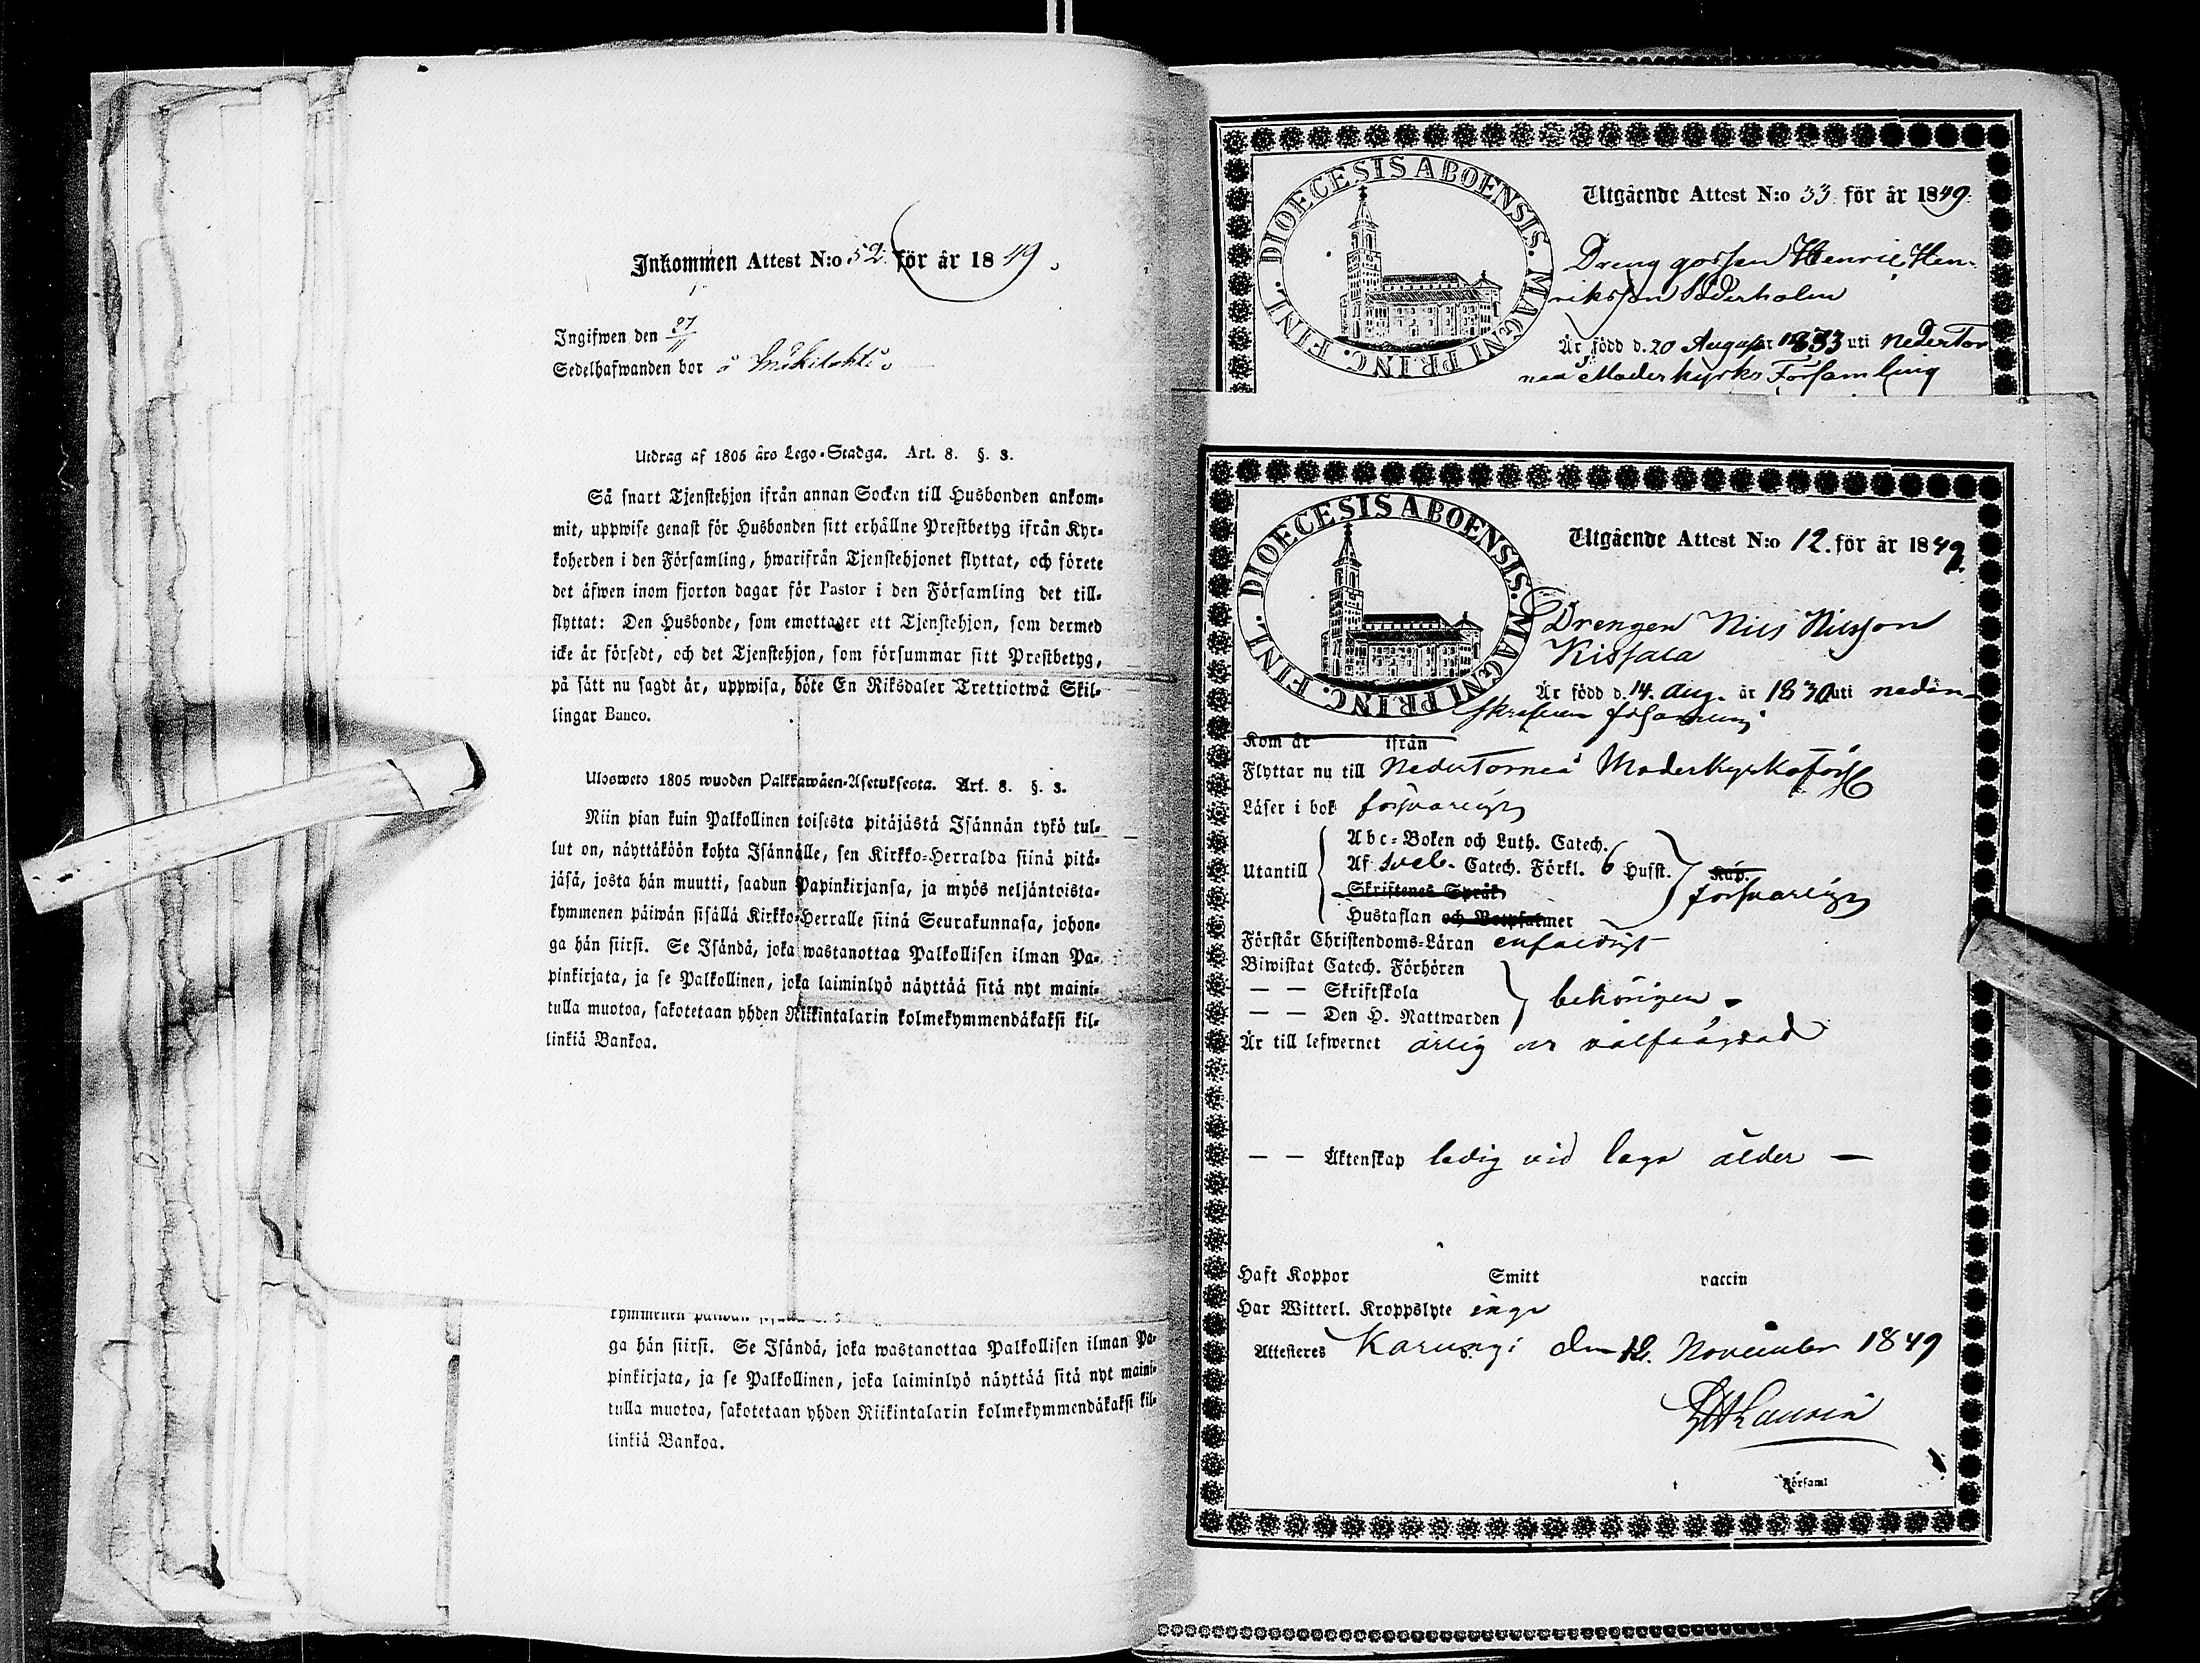 Inkommen Attest N:o 52. för år 1849.
Ingifwen den 27/11
Sedelhafwanden bor å
Utdrag af 1805 års Lego-Stadga. Art. 8. §. 3.
Så snart Tjenstehjon ifrån annan Socken till Husbonden ankom-
mit, uppwise genast för Husbonden sitt erhållne Prestbetyg ifrån Kyr-
koherden i den Församling, hwarifrån Tjenstehjonet flyttat, och förete
det äfwen inom fjorton dagar för Pastor i den Församling det till-
flyttat: Den Husbonde, som emottager ett Tjenstehjon, som dermed
icke är försedt, och det Tjenstehjon, som försummar sitt Prestbetyg,
på sätt nu sagdt är, uppwisa, böte En Riksdaler Trettiotwå Skil-
lingar Banco.
Ulosweto 1805 wuoden Palkkawäen-Asetuksesta. Art. 8. §. 3.
Niin pian kuin Palkollinen toisesta pitäjästä Isännän tykö tul-
lut on, näyttäköön kohta Isännälle, sen Kirkko-Herralda siinä pitä-
jäsä, josta hän muutti, saadun Papinkirjansa, ja myös neljäntoista-
kymmenen päiwän sisällä Kirkko-Herralle siinä Seurakunnasa, johon-
ga hän siirsi. Se Isändä, joka wastanottaa Palkollisen ilman Pa-
pinkirjata, ja se Palkollinen, joka laiminlyö näyttää sitä nyt maini-
tulla muotoa, sakotetaan yhden Riikintalarin kolmekymmendäkaksi kil-
linkiä Bankoa.
kymmenen päiwän
ga hän siirsi. Se Isändä, joka wastanottaa Palkollisen ilman Pa-
pinkirjata, ja se Palkollinen, joka laiminlyö näyttää sitä nyt maini-
tulla muotoa, sakotetaan yhden Riikintalarin kolmekymmendäkaksi kil-
linkiä Bankoa.
DIOECESIS ABOENSIS. MAGNI PRINC. FINL.
Utgående Attest N:o 33 för år 1849.
Dreng gossen Henric Hen-
riksson Söderholm
Är född d. 20 August 1833 uti Neder Tor
neå Moderkyrko Församling
DIOECESIS ABOENSIS. MAGNI PRINC. FINL.
Utgående Attest N:o 12. för år 1849.
Drengen Nils Nilsson
Kissala
Är född d. 14. Aug. år 1830 uti nedan-
skrefven församling
Kom år ifrån
Flyttar nu till NederTorneå Moderkyrkoförs
Läser i bok försvarligt
Abc-Boken och Luth. Catech.
Utantill Af Sveb. Catech. Förkl. 6 Hufst. Kap.
Skriftenes Språk försvarligt
Hustaflan och Botpsalmer
Förstår Christendoms-Läran enfaldigt
Biwistat Catech. Förhören
— — Skriftskola behörigen
— — Den H. Nattwarden
Är till lefwernet ärlig och välfrägdad
— — Äktenskap ledig vid laga ålder —
Haft Koppor Smitt vaccin
Har Witterl. Kroppslyte inga
Attesteres Karungi den 12. November 1849
Församl